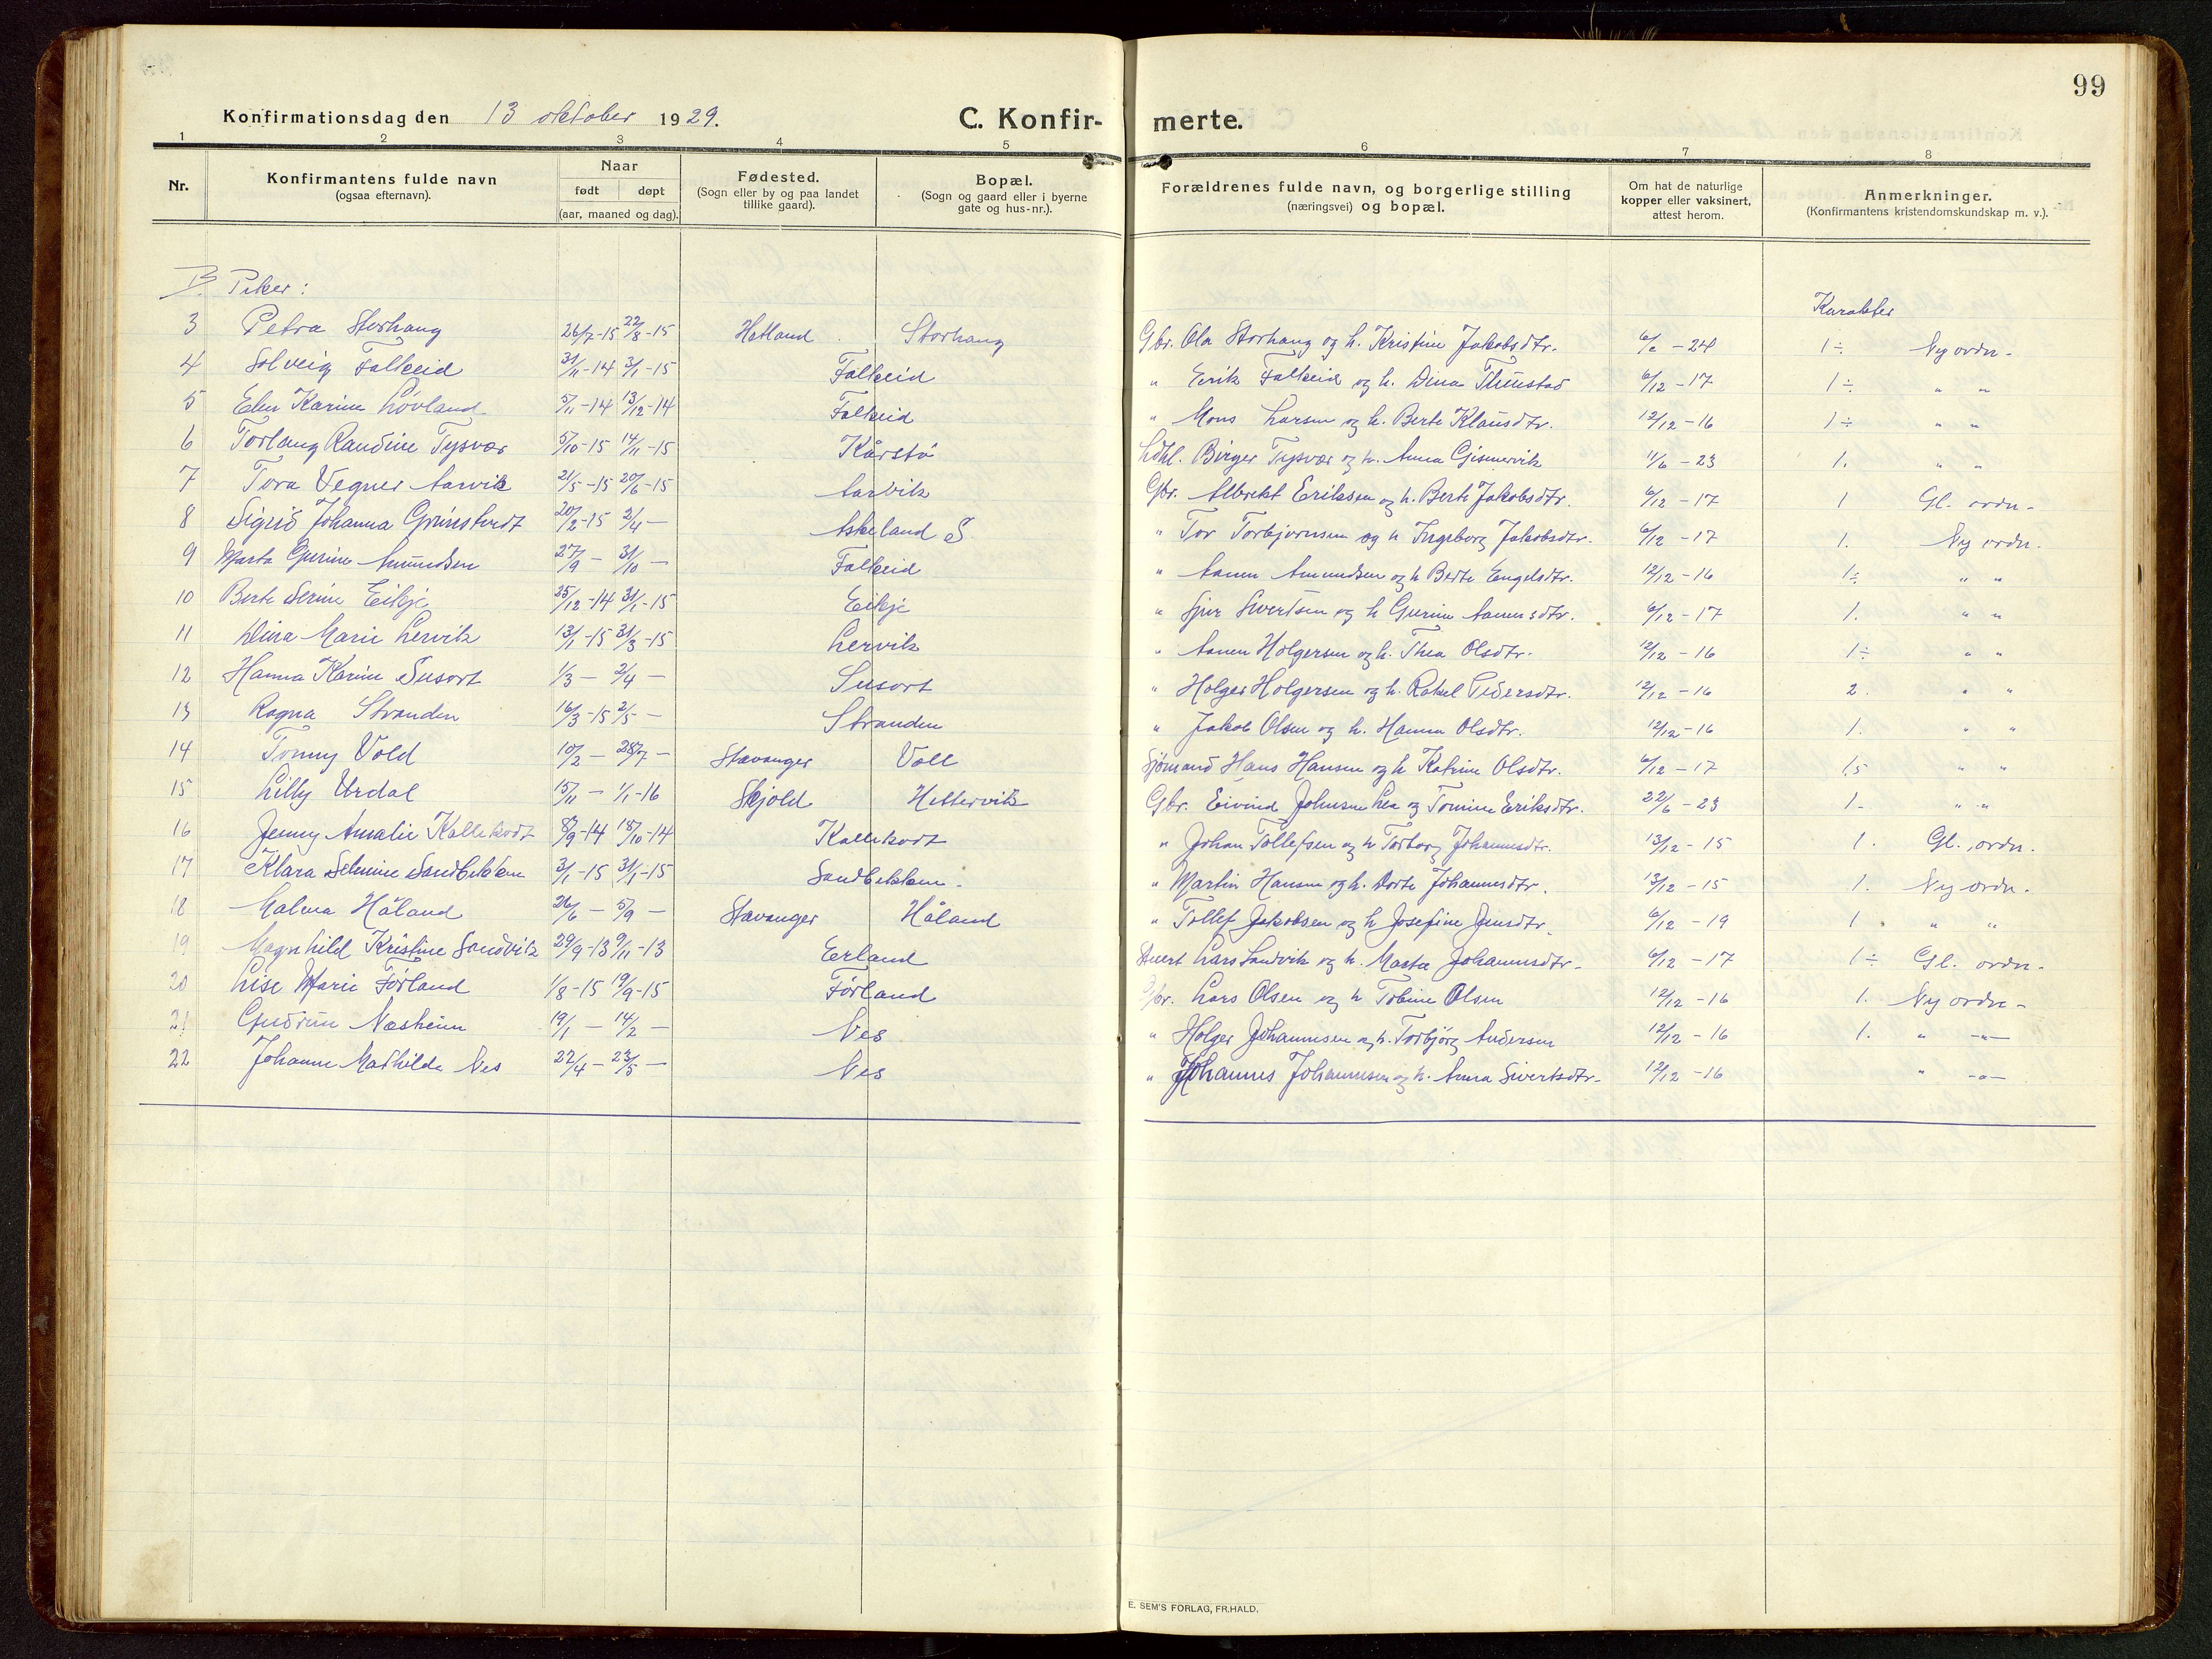 99
Konfirmationsdag den 13 oktober 1929.
C. Konfir-merte.
1 2 3 4 5 6 7 8
Nr. Konfirmantens fulde navn (ogsaa efternavn). Naar født døpt (aar, maaned og dag). Fødested. (Sogn eller by og paa landet tillike gaard). Bopæl. (Sogn og gaard eller i byerne gate og hus-nr.). Forældrenes fulde navn, og borgerlige stilling (næringsvei) og bopæl. Om hat de naturlige kopper eller vaksinert, attest herom. Anmerkninger. (Konfirmantens kristendomskundskap m. v.).
Piker:
Karakter
3 Petra Storhaug 26/7-15 22/8-15 Hetland Storhaug Gbr. Ola Storhaug og h. Kristine Jakobsdtr. -24 1÷ Ny ordn-
4 Solveig Falkeid -14 3/1-15 Falkeid " Erik Falkeid og h. Dina 6/12-17 1÷ " "
5 Karine Lövland 5/11-14 13/12-14 Falkeid " Mons Larsen og h. Berte Klausdtr. 12/12-16 1÷ " "
6 Torlaug Randine Tysvær 5/10-15 14/11-15 Kårstö Birger Tysvær og h. Anna Gismervik 11/6-23 1. " "
7 Tora Vegner Aarvik 21/5-15 20/6-15 Aarvik Gbr. Albrekt Eriksen og h. Berte Jakobsdtr. 6/12-17 1 Gl. ordn-
8 Sigrid Johanna 20/2-15 2/4 — Askeland S " Tor Torbjørnsen og h Ingeborg Jakobsdtr. 6/12-17 1. Ny ordn.
9 Marta Gurine Amundsen 27/9 — 31/10 — Falkeid " Aanen Amundsen og h Berte Engelsdtr. 12/12-16 1÷ " "
10 Berte Serine Eikje 25/12-14 31/1-15 Eikje " Sjur Sivertsen og h Gurine Aanensdtr. 6/12-17 1. " "
11 Dina Marie Lervik 13/1-15 31/3-15 Lervik " Aanen Holgersen og h. Thea Olsdtr. 12/12-16 1÷ " "
12 Hanna Karine Susort 1/3 — 2/4 — Susort " Holger Holgersen og h. Rakel Pedersdtr. 12/12-16 2. " "
13 Ragna Stranden 16/3-15 2/5 — Stranden " Jakob Olsen og h. Hanna Olsdtr. 12/12-16 1. " "
14 Tonny Vold 10/2 — 28/7 — Stavanger Voll Sjømand Hans Hansen og h Katrine Olsdtr. 6/12-17 1,5 " "
15 Lilly Urdal 15/11 — 1/1-16 Skjold Hettervik Gbr. Eivind Johnsen Lea og Tomine Eriksdtr. 22/6-23 1- " "
16 Jenny Amalie Kallekodt 8/9-14 18/10-14 Kallekodt " Johan Tollefsen og h Torborg Johannesdtr. 13/12-15 1. Gl. ordn.
17 Klara Selmine Sandbekken 3/1-15 31/1-15 Sandbekken. " Martin Hansen og h. Dorte Johannesdtr. 13/12-15 1. Ny ordn.
18 Malena Håland 26/6 — 5/9 — Stavanger Håland " Tollef Jakobsen og h Josefine Jensdtr. 6/12-19 1 " "
19 Magnhild Kristine Sandvik 29/9-13 9/11-13 Erland Lars Sandvik og h. Marta Johannesdtr- 6/12-17 1÷ Gl. ordn-
20 Lise Marie Førland 1/8-15 19/9-15 Førland Gbr. Lars Olsen og h Tobine Olsen 12/12-16 1. Ny ordn-
21 Gudrun Næsheim 19/1 — 14/2 — Nes " Holger Johannesen og h. Torbjørg Andersen 12/12-16 1. " —"—
22 Johanne Mathilde Nes 22/4 — 23/5 — Nes " Johannes Johannesen og h. Anna Sivertsdtr- 12/12-16 " —"—
E. SEM'S FORLAG, FR.HALD.